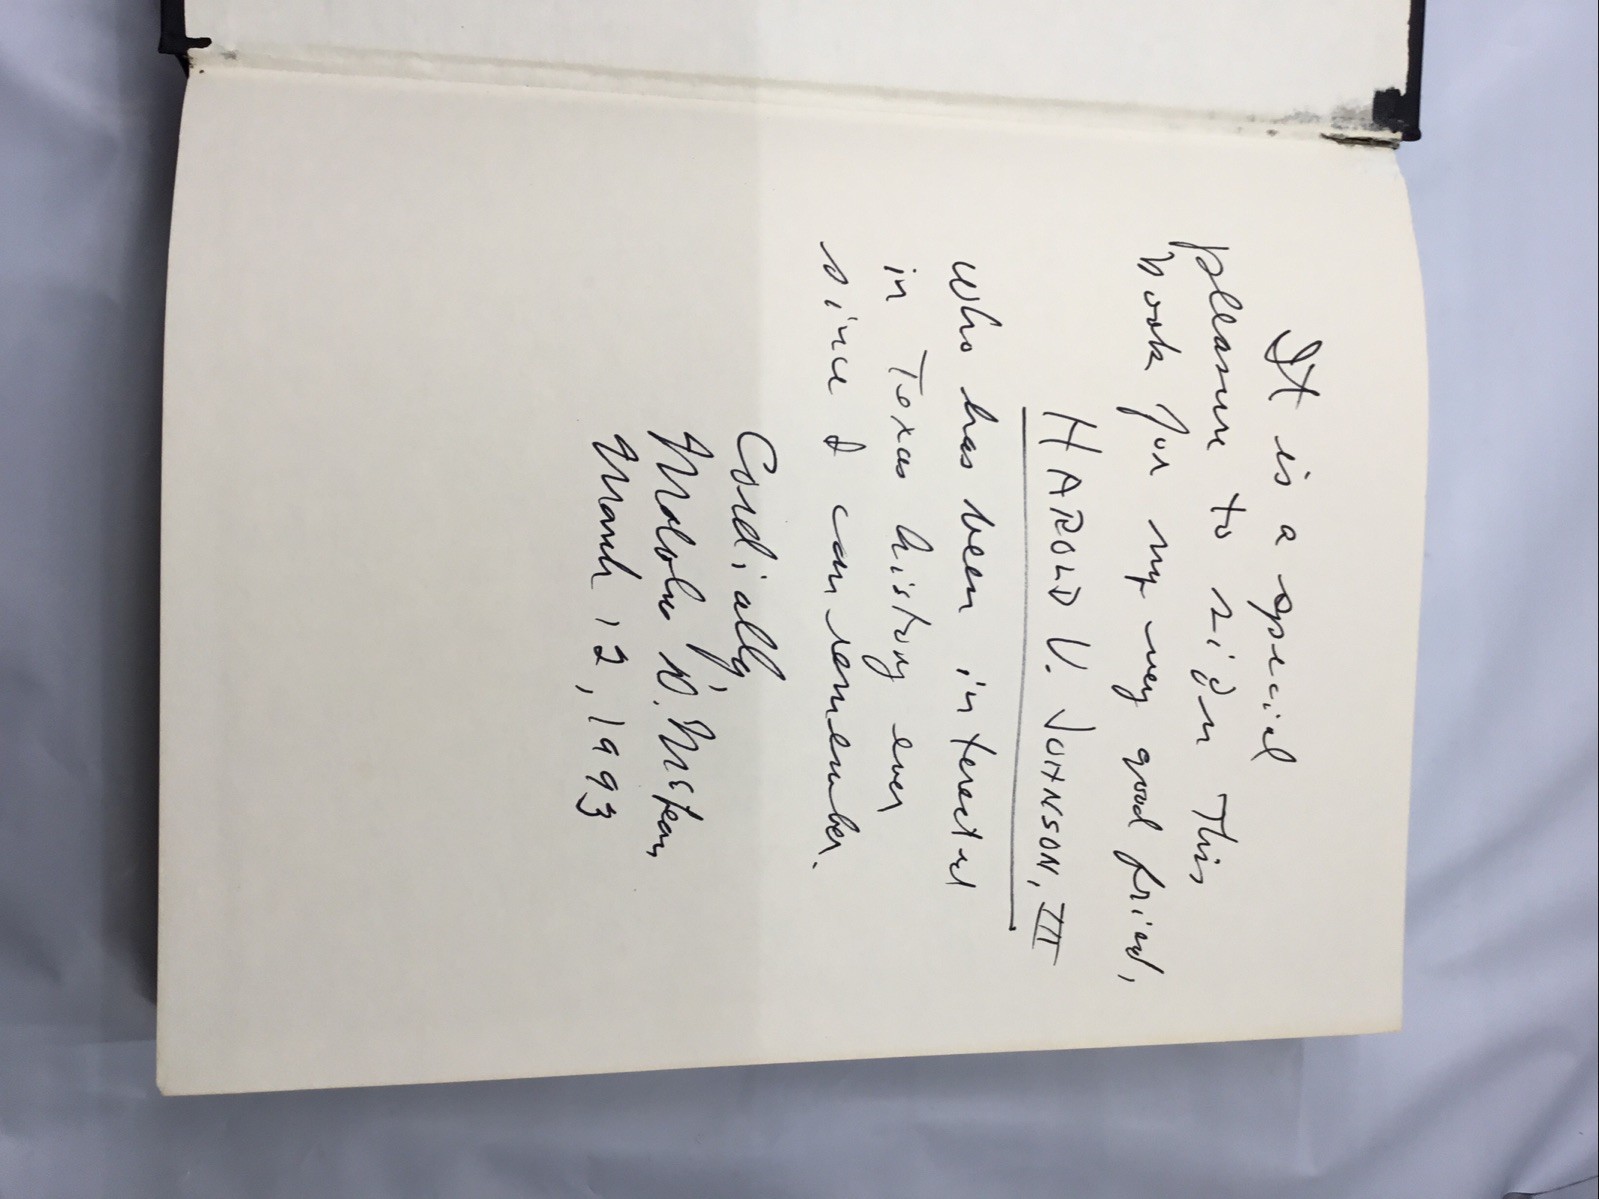 It is a special
pleasure to sign This
book for my very good friend,
HAROLD V. JOHNSON, III
who has been interested
in Texas history ever
since I can remember.
Cordially,
Malcolm D. McLean
March 12, 1993